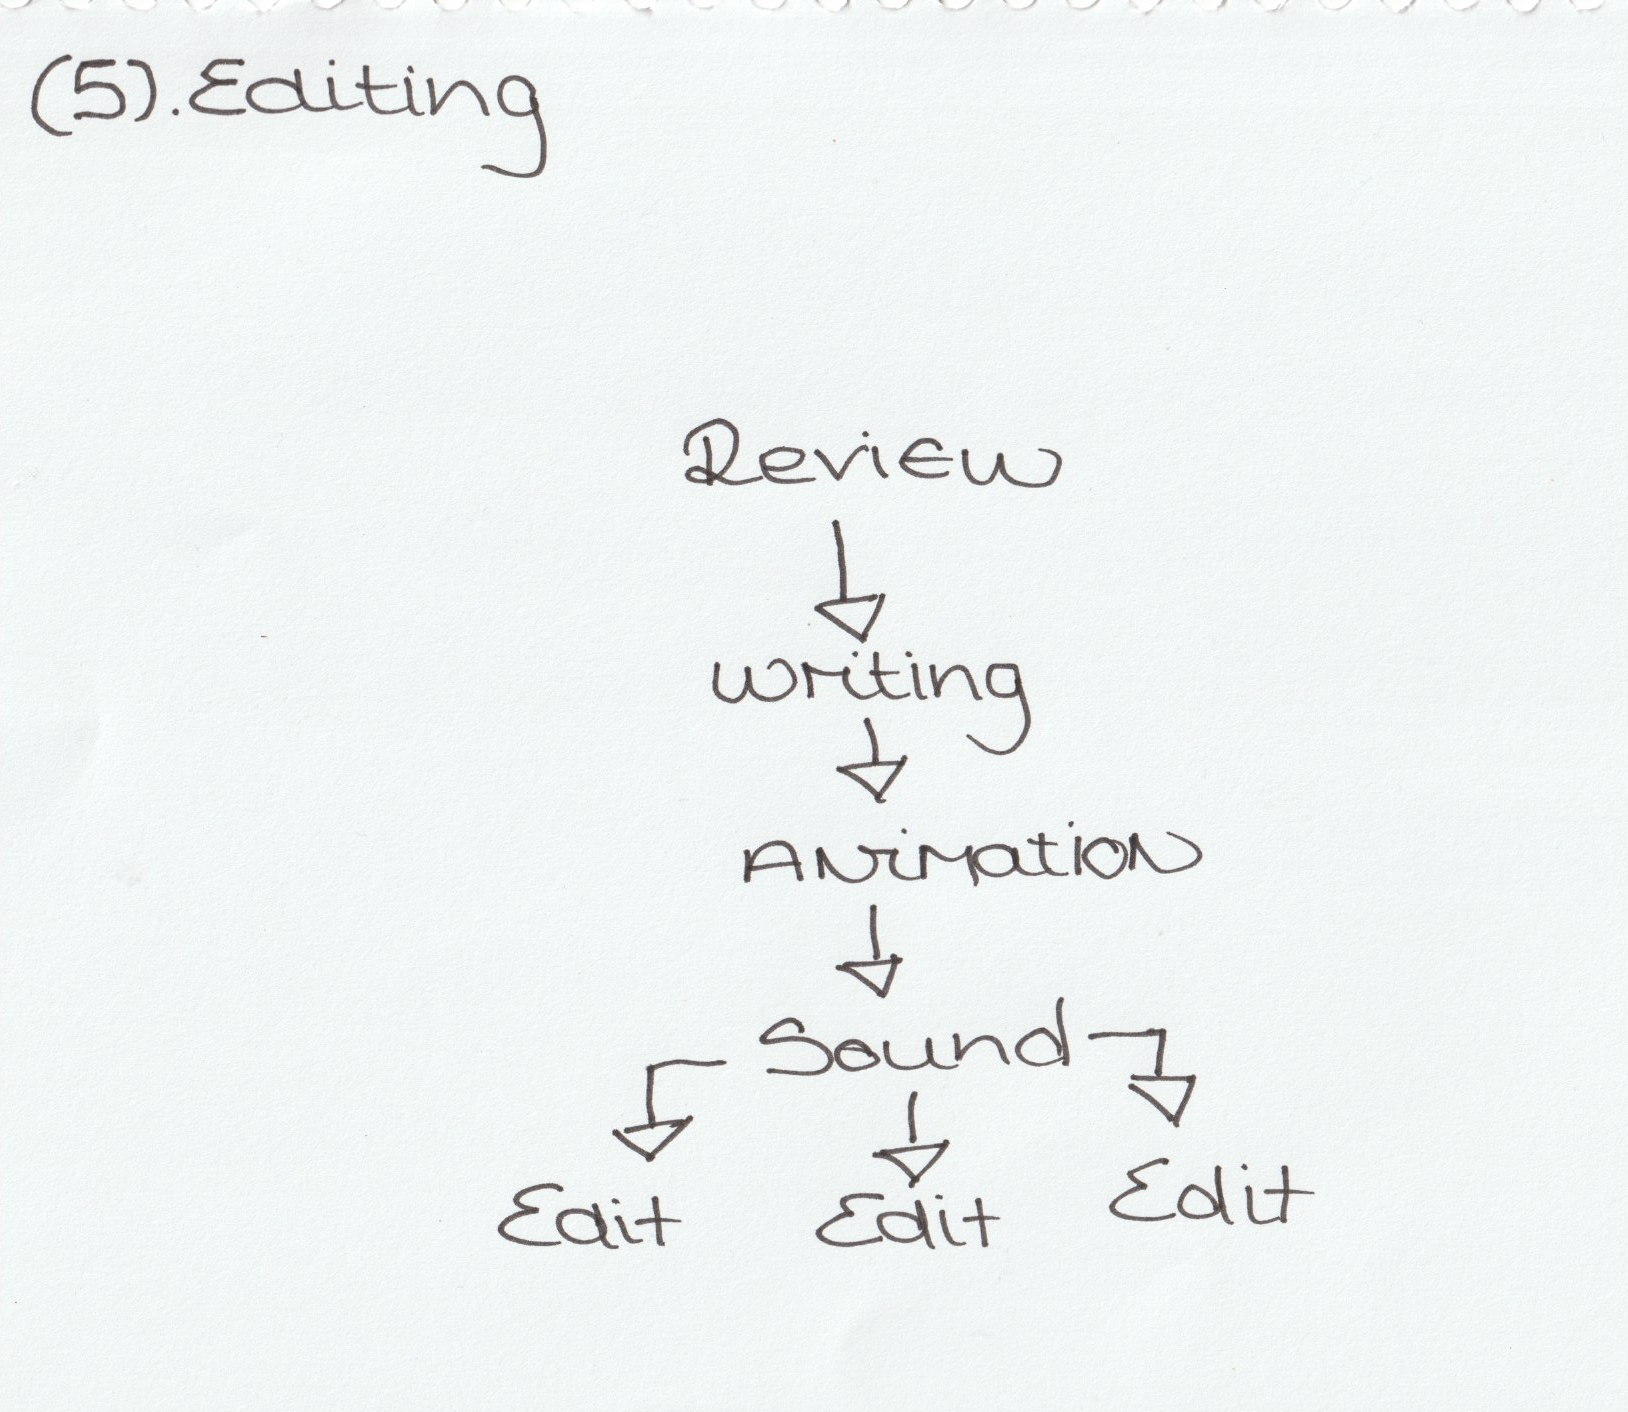 (5). Editing
Review
writing
Animation
Sound
Edit Edit Edit